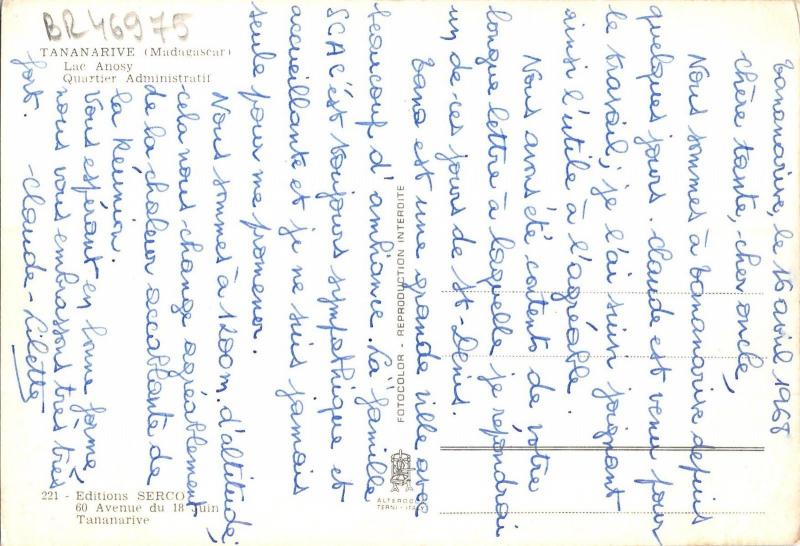 BR46975
TANANARIVE (Madagascar)
Lac Anosy
Quartier Administratif
Tananarive, le 16 avril 1968
chère tante, cher oncle,
Nous sommes à Tananarive depuis
quelques jours. Claude est venu pour
le travail; je l'ai suivi joignant
ainsi l'utile à l'agréable.
Nous avons été contents de votre
longue lettre à laquelle je répondrai
un de ces jours de St-Denis.
Tana est une grande ville avec
beaucoup d'ambiance. La "famille
SCAC" est toujours sympathique et
accueillante et je ne suis jamais
seule pour me promener.
Nous sommes à 1200m. d'altitude;
cela nous change agréablement
de la chaleur accablante de
la Réunion.
Vous espérant en bonne forme,
nous vous embrassons très très
fort.
Claude - Lilette
FOTOCOLOR - REPRODUCTION INTERDITE
ALTEROCCA
TERNI - ITALY
221 - Editions SERCO
60 Avenue du 18 Juin
Tananarive